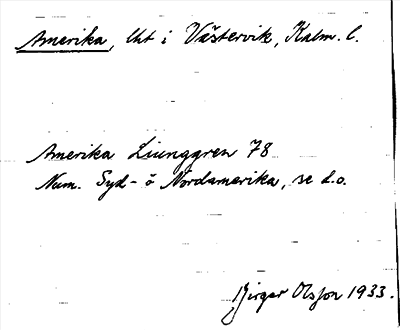 Amerika, lht i Västervik, Kalm. l.
Amerika Ljunggren 78
Num. Syd- o Nordamerika, se d.o.
Birger Olsson 1933.